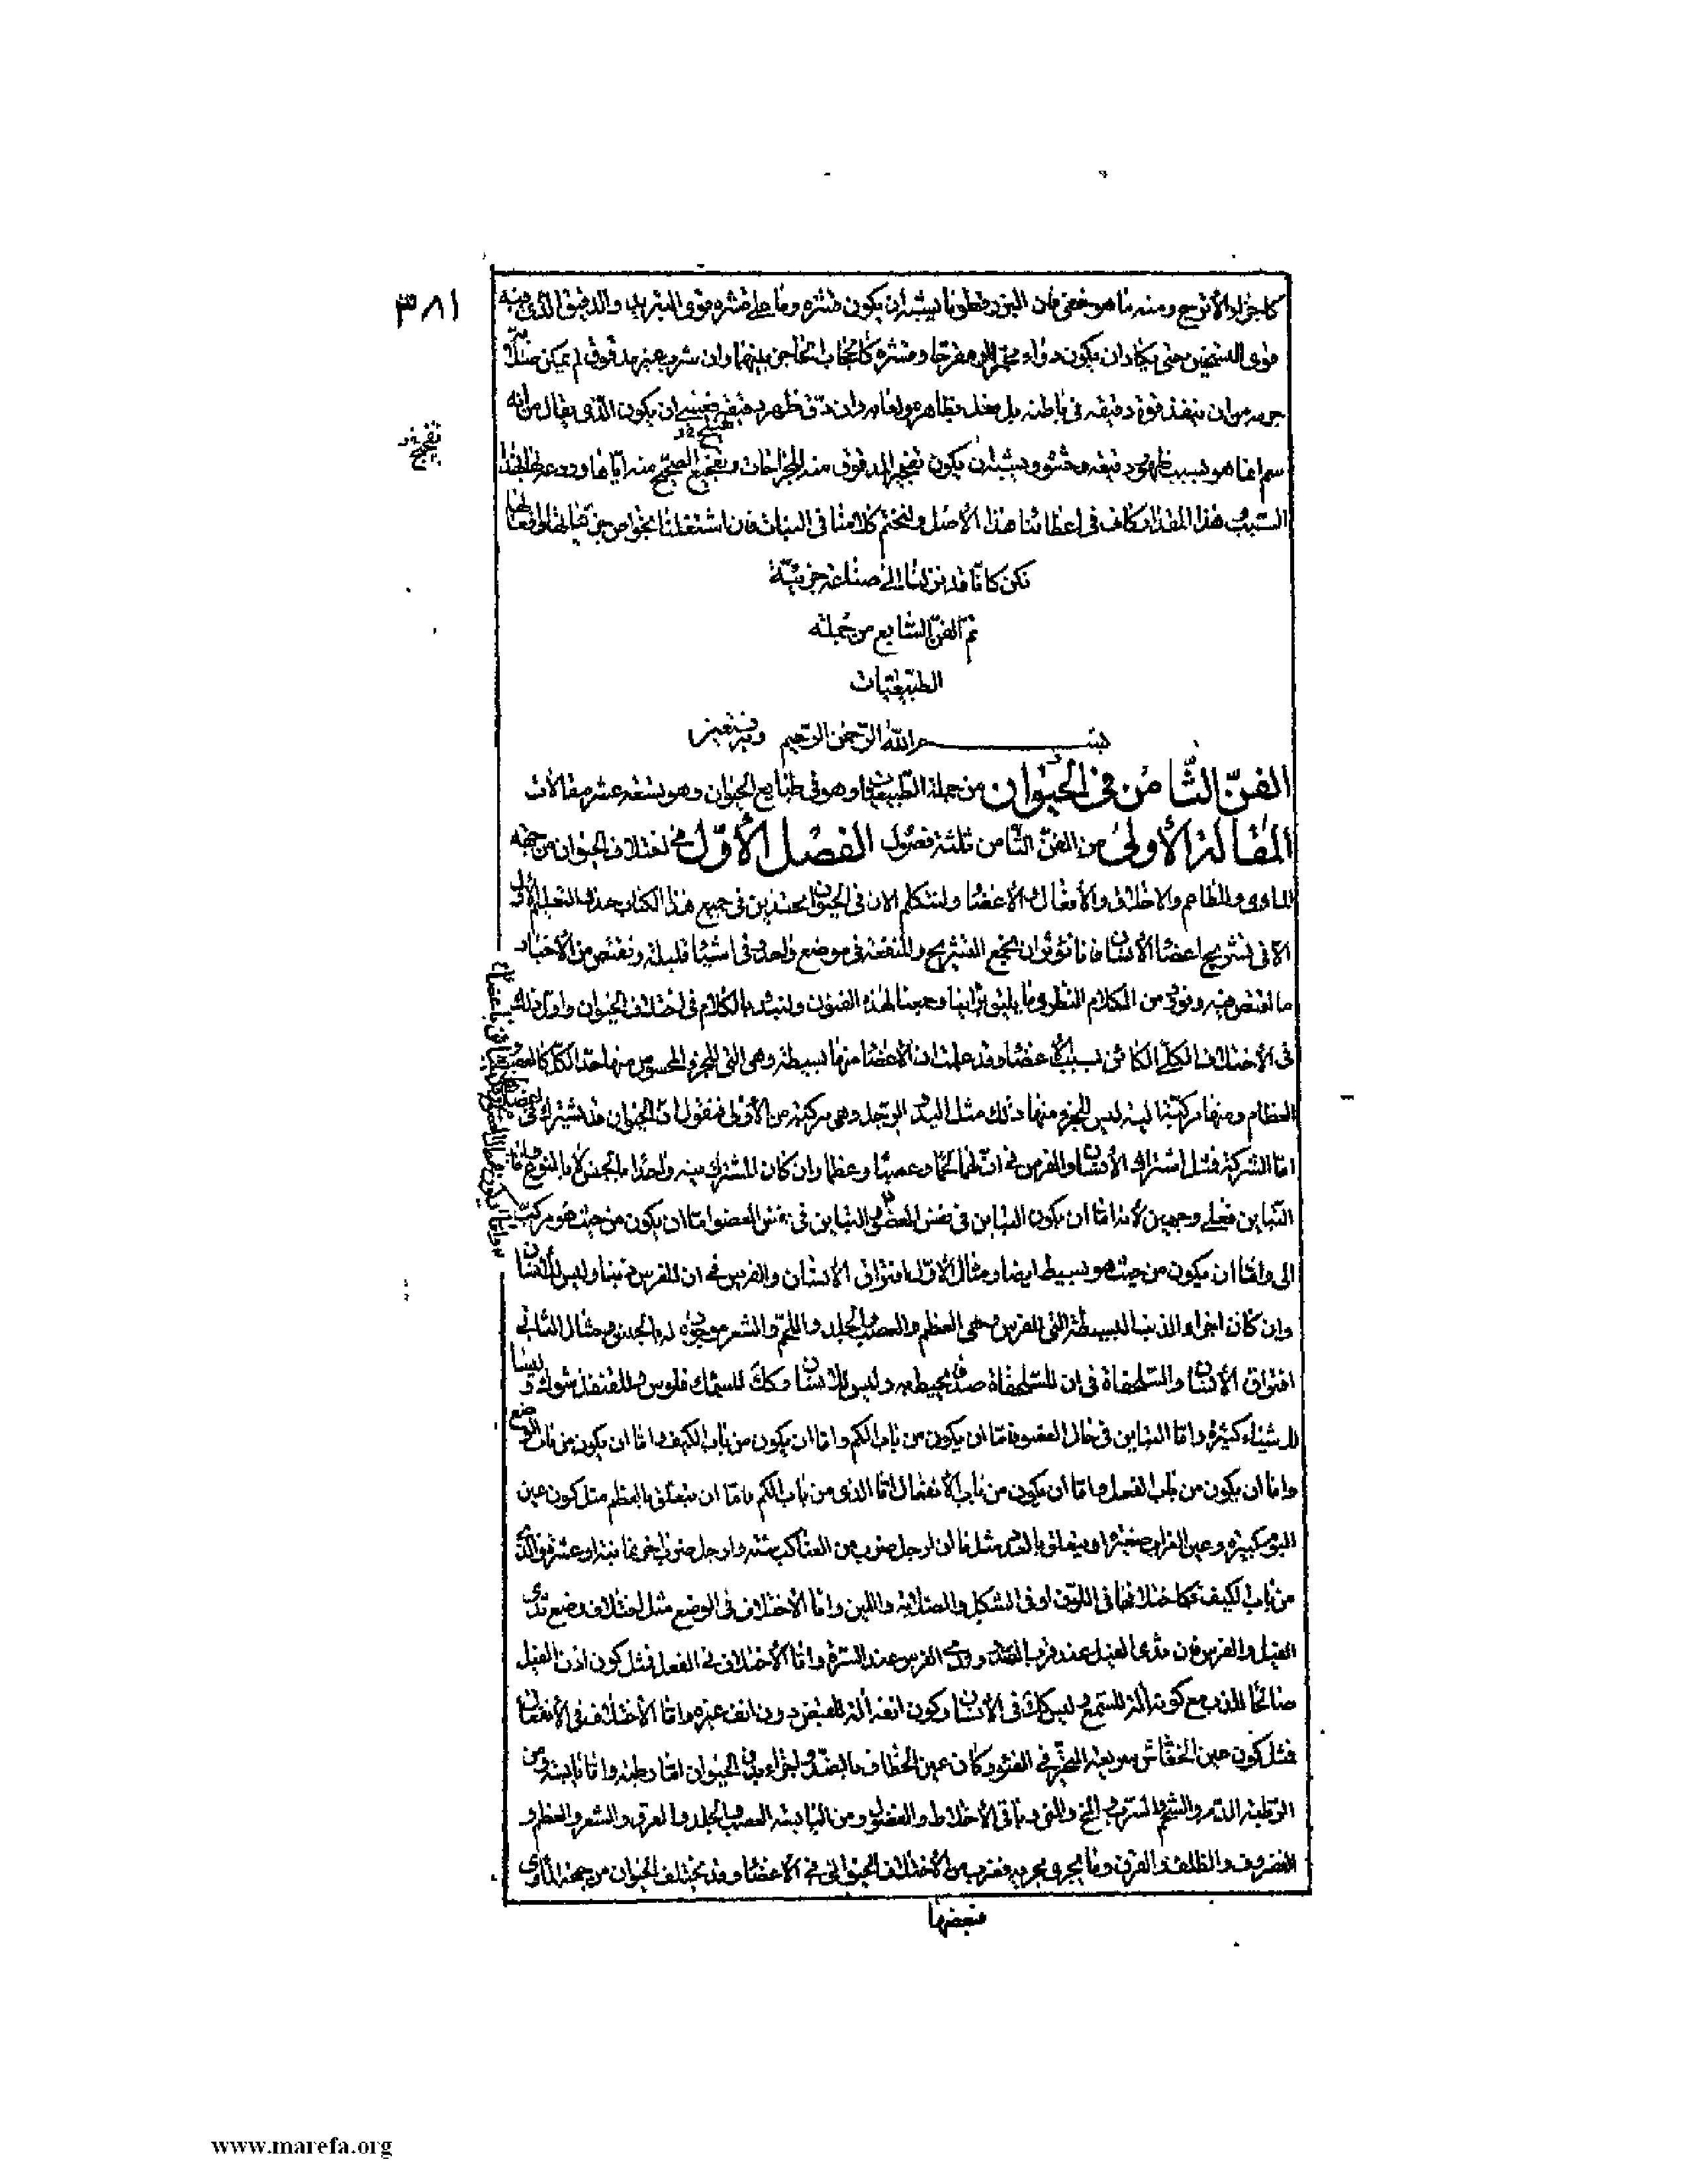 ٣٨١
كاجزاء الأترج ومنه ما هو خفى فان البزرقطونا يشبه ان يكون قشره وما على قشره قوى التبريد والدقيق الذى فيه
قوى التسخين حتى يكاد ان يكون دواء محمرا او مقرحا وقشره كالحجاب الحاجز بينهما وان شرب غير مدقوق لم يمكن
جرمه من ان ينفذ قوة دقيقه فى باطنه بل فعل بظاهره ولعابه وان دق ظهر دقيقه فيشبه ان يكون الذى يقال من انه
سم انما هو بسبب ظهور دقيقه وحشوه ويشبه ان يكون تفجير المدقوق منه للجراحات وتفجيج الصحيح منه اياها
السبب هذا المقدار كاف فى اعطائنا هذا الأصل ولنختم كلامنا فى النبات فان اشتغلنا بخواص جزئياتها وافعالها
نكن كانا قد نزلنا الى صناعة جزئية
تم الفن السابع من جملة
الطبيعيات
بسم الله الرحمن الرحيم وبه نستعين
الفن الثامن فى الحيوان من جملة الطبيعيات وهو فى طبايع الحيوان وهو تسعة عشر مقالات
المقالة الأولى من الفن الثامن ثلثة فصول الفصل الأول فى اختلاف الحيوان من جهة
المأوى والمطاعم والاخلاق والأفعال والأعضا ولنتكلم الان فى الحيوان محتذين فى جميع هذا الكتاب حذو التعليم الأول
الا فى تشريح اعضا الأنسان فانا نؤثر ان نجمع التشريح والمنفعة فى موضع واحد وفى اشيا قليلة ونقتص من الأخبار
ما اقتص فيه ونورد من الكلام النظرى ما يليق برأينا وجمعنا لهذه الفنون ولنبدء بالكلام فى اختلاف الحيوان واول ذلك
فى الأختلاف الكلى الكائن بسبب الأعضا وقد علمت ان الأعضا منها بسيطة وهى التى للجزو المحسوس منها حد الكل كالعصب
العظام ومنها مركبة الية ليس للجزو منها ذلك مثل اليد والرجل وهى مركبة من الأولى فنقول ان الحيوان قد تشترك فى
اما الشركة فمثل اشتراك الأنسان والفرس فى ان لهما لحما وعصبا وعظما وان كان المشترك فيه واحدا بالجنس لا بالنوع واما
التباين فعلى وجهين لأنه اما ان يكون التباين فى نفس العضو و التباين فى نفس العضو اما ان يكون من حيث هو مركب
الى واما ان يكون من حيث هو بسيط ايضا ومثال الأول افتراق الأنسان والفرس فى ان للفرس ذنبا وليس للأنسان
وان كان اجزاء الذنب البسيطة التى للفرس وهى العظم والعصب والجلد واللحم والشعر موجوده له بالجنس ومثال الثانى
افتراق الأنسان والسلحفاة فى ان للسلحفاة صدفا يحيط به وليس للأنسان وكك للسمك فلوس وللقنفذ شوك وليسا
لاشياء كثيرة واما التباين فى حال العضو فاما ان يكون من باب الكم واما ان يكون من باب الكيف واما ان يكون من باب الوضع
واما ان يكون من باب الفعل واما ان يكون من باب الأنفعال اما الذى من باب الكم فاما ان يتعلق بالعظم مثل كون عين
البوم كبيرة وعين العقاب صغيرة او يتعلق بالعدد مثل ما ان ارجل ضرب من العناكب ستة وارجل ضرب اخر ثمانية او عشرة والذى
من باب الكيف فكاختلافها فى اللون او فى الشكل والصلابة واللين واما الأختلاف فى الوضع مثل اختلاف وضع ثدى
الفيل والفرس فان ثدى الفيل عند قرب الصدر وثدى الفرس عند السرة واما الأختلاف فى الفعل فمثل كون اذن الفيل
صالحا للذب مع كونه الة للسمع وليس كك فى الأنسان وكون انفه الة للقبض دون انف غيره واما الأختلاف فى الأنفعال
فمثل كون عين الخفاش سريعة التحير فى الضوء وكان عين الخطاف بالضد واجزاء بدن الحيوان اما رطبة واما يابسة ومن
الرطبة الدم والشحم والثرب والمخ والمنى وباقى الأخلاط والفضول ومن اليابسة العصب والجلد والعرق والشعر والعظم و
الغضروف والظلف والقرن وما يجرى مجريه فقرب من الأختلاف الحيوانى فى الأعضا وقد يختلف الحيوان من جهة المأوى
فبعضها
www.marefa.org